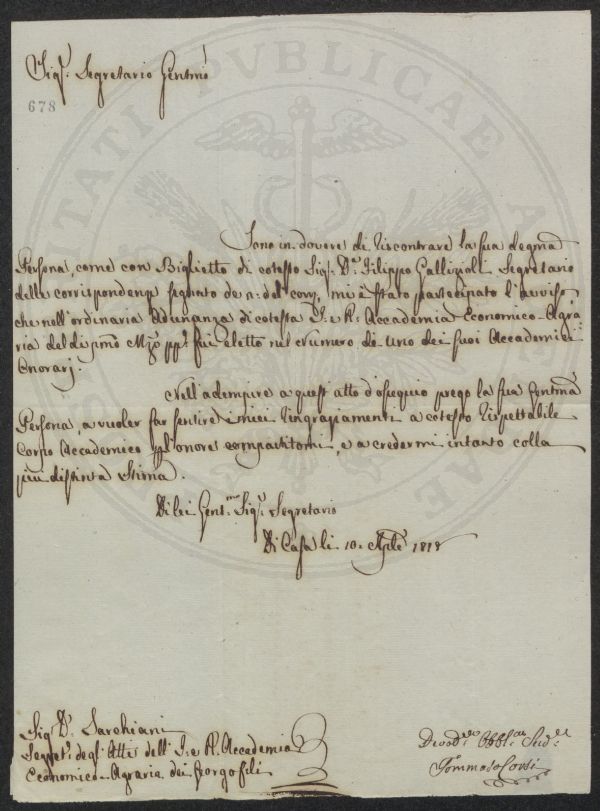 Sig.r Segretario Gentmo
678
Sono in dovere di riscontrare la sua degma
Persona, come con Biglietto di cotesto Sig.r D.r Filippo Gallizioli Segretario
della corrispondenza segnato de 2. del corr., mi è stato partecipato l'avviso
che nell'ordinaria Adunanza di cotesta I. e R. Accademia Economico-Agra-
ria del dì pmo Mzo pp. fui eletto nel Numero di uno dei suoi Accademici
Onorarj.
Nell'adempire a quest'atto d'ossequio prego la sua Gentma
Persona, a voler far sentire i miei ringraziamenti a cotesto rispettabile
Corpo Accademico p l'onore compartitomi, e a credermi intanto colla
più distinta stima.
Di lei Gent.mo Sig.r Segretario
Di Casa li 10. Aprle 1818
Sig.r D.r Sarchiani
Segret.o degl'Atti dell'I. e R. Accademia
Economico-Agraria dei Gorgofili
Devod.mo Obbl.mo Sud.e
Tommaso Corsi
PUBLICAE